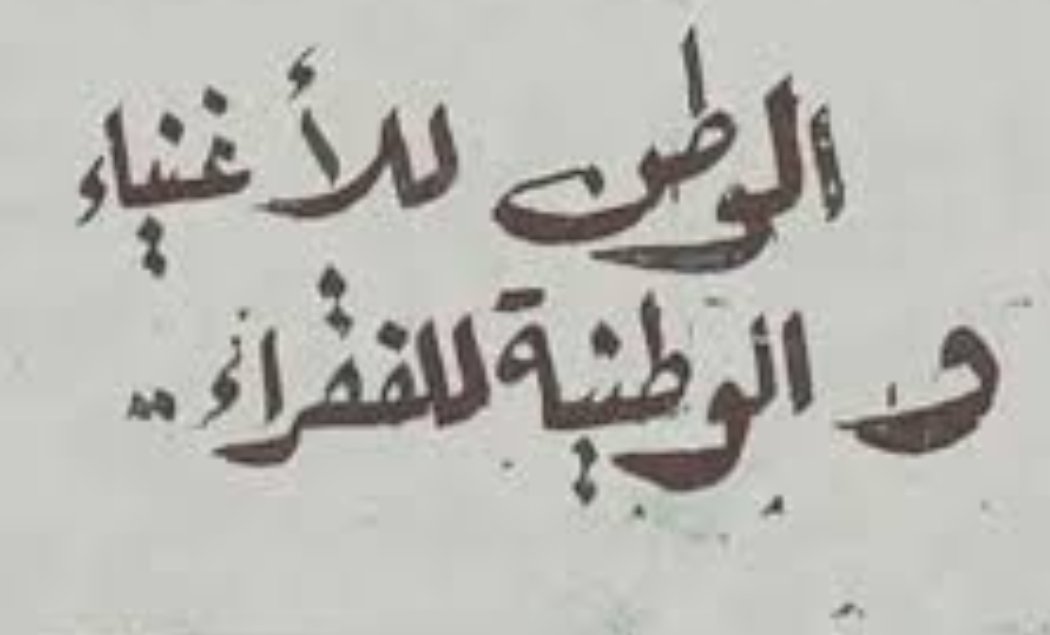 الوطن للأغنياء
و الوطنية للفقراء ..